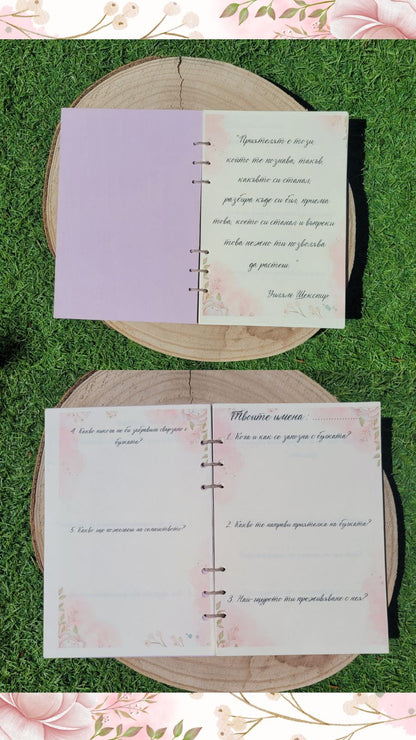 "Приятелят е този
който те познава, такъв
какъвто си станал,
разбира къде си бил, приема
това, което си станал и въпреки
това нежно ти позволява
да растеш."
Уилям Шекспир
Твоите имена:
1. Кога и как се запозна с булката?
2. Какво те направи приятелка на булката?
3. Най-щурото ти преживяване с нея?
4. Какво никога не би забравила свързано с
булката?
5. Какво ще пожелаеш на семейството?